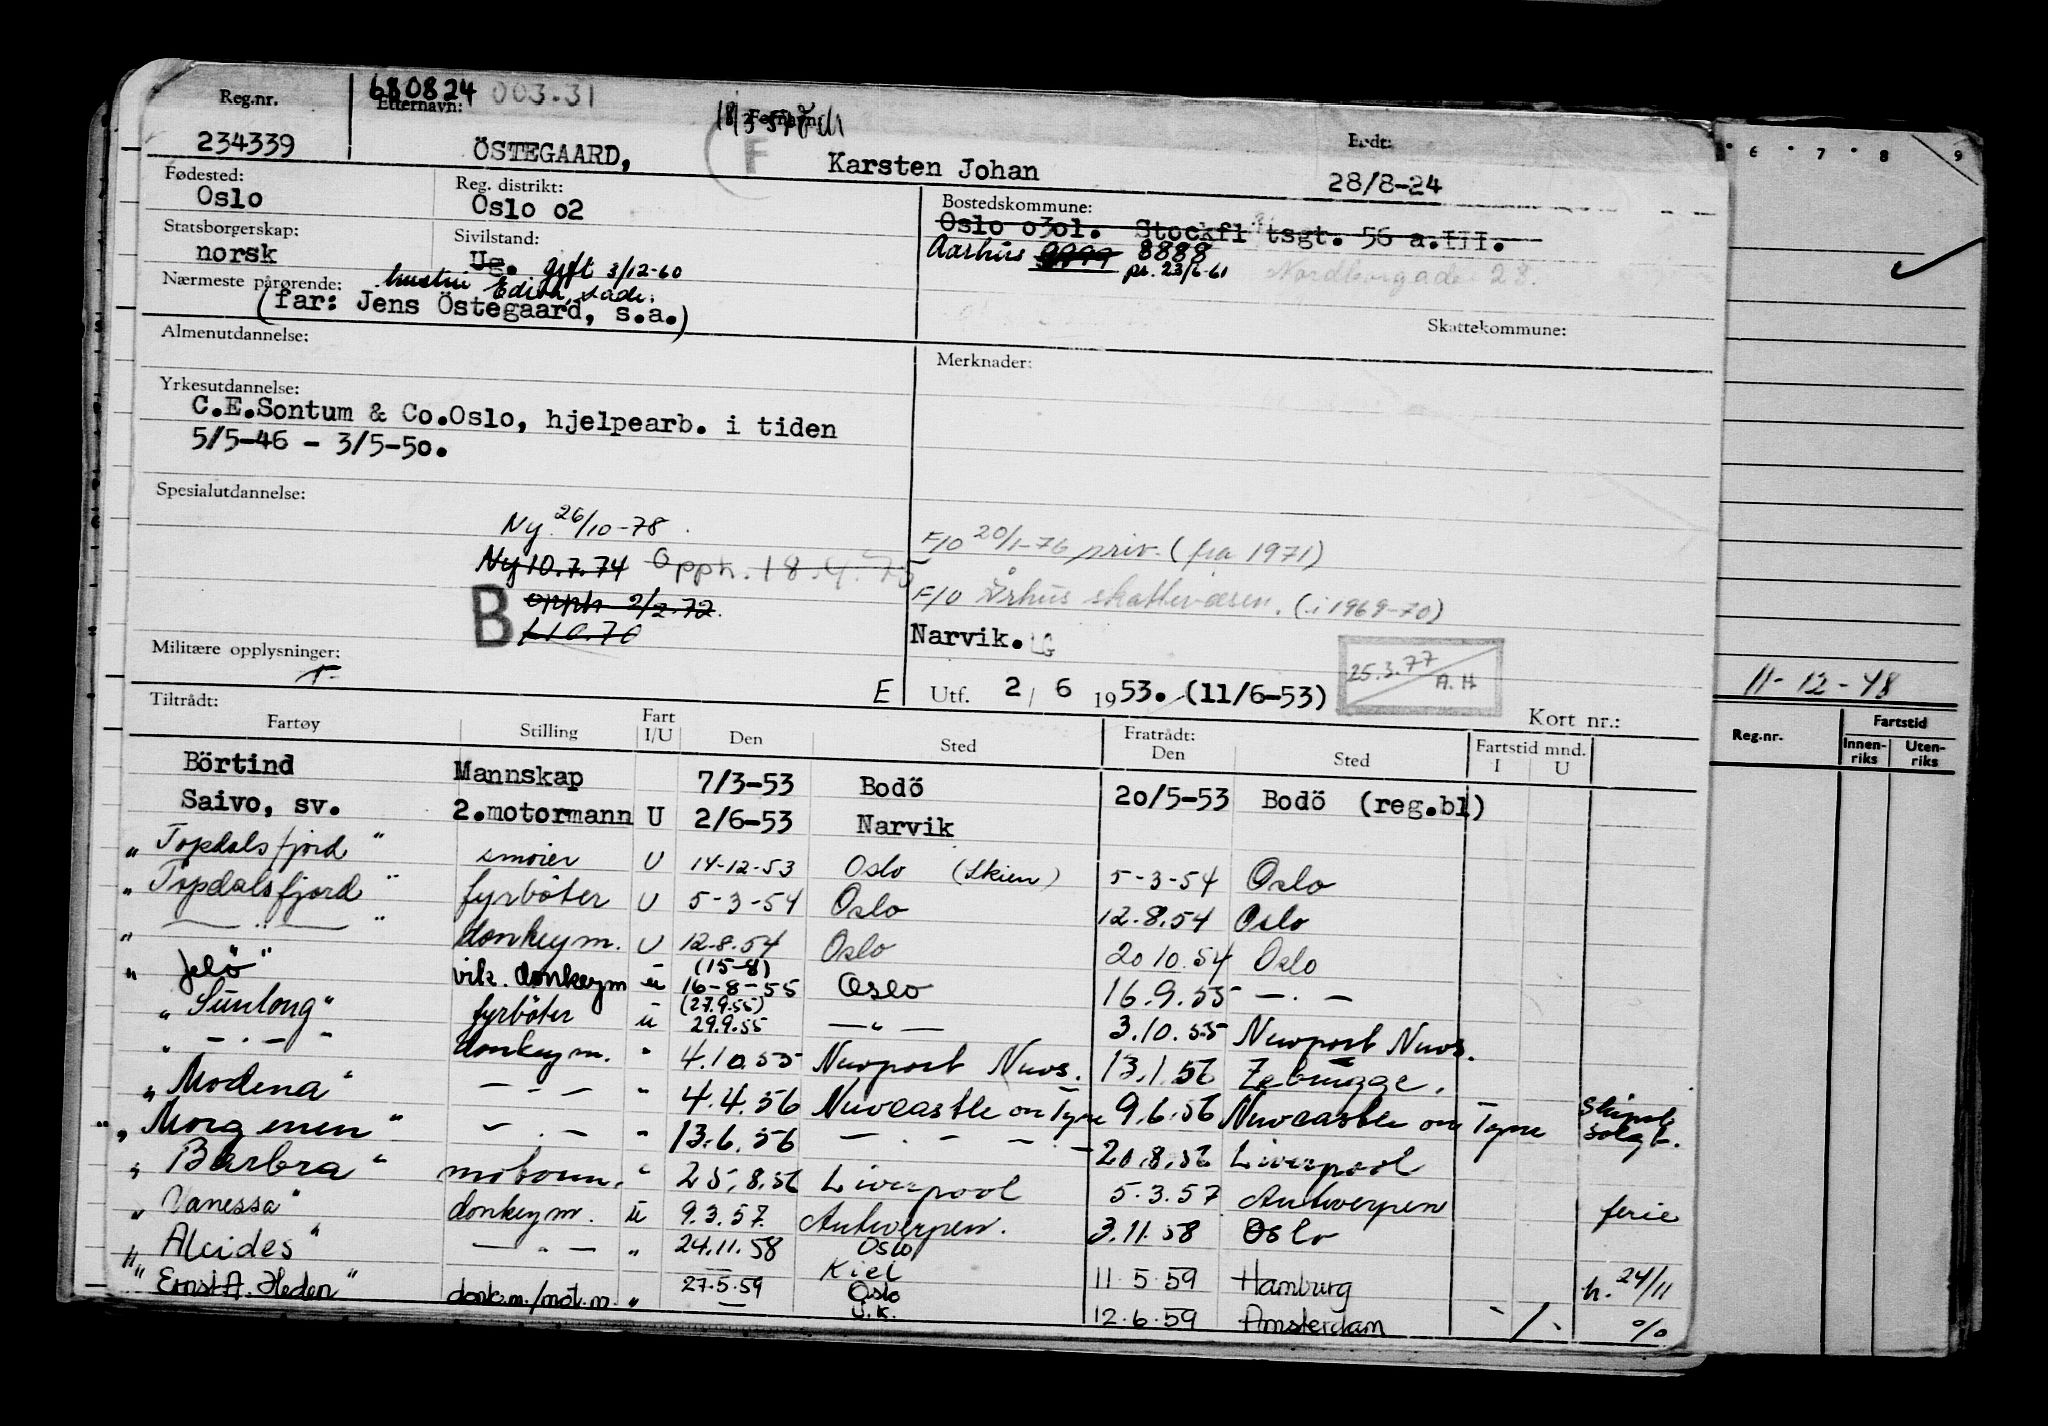 680824 003.31
Reg.nr. Etternavn: Fornavn: Født:
234339 ÖSTEGAARD, F Karsten Johan 28/8-24
Fødested: Reg. distrikt: Bostedskommune:
Oslo Oslo o2 Oslo o3ol. Stockfl tsgt. 56 a.III.
Statsborgerskap: Sivilstand: Aarhus 8888
norsk Ug. gift 3/12-60 pr. 23/6-61
Nærmeste pårørende: hustru
(far: Jens Östegaard, s.a.)
Skattekommune:
Almenutdannelse: Merknader:
Yrkesutdannelse:
C.E.Sontum & Co.Oslo, hjelpearb. i tiden
5/5-46 - 3/5-50.
Spesialutdannelse:
Ny 26/10-78
F/O 20/1-76 priv. (fra 1971)
Ny 10.7.74 Opph. 18.4.75
F/O Århus skattevæsen. (i 1969-70)
B opph 2/2.72.
1.10.70
Narvik.
Militære opplysninger:
25.3.77 A.H
E Utf. 2/6 1953. (11/6-53)
Kort nr.:
11-12-48
Tiltrådt: Fratrådt:
Fartøy Stilling Fart I/U Den Sted Den Sted Fartstid mnd. I U
Reg.nr. Fartstid Innen-riks Uten-riks
Börtind Mannskap 7/3-53 Bodö 20/5-53 Bodö (reg.bl)
Saivo, sv. 2.motormann U 2/6-53 Narvik
" Topdalsfjord " smörer U 14-12-53 Oslo (Skien) 5-3-54 Oslo
" Topdalsfjord " fyrböter U 5-3-54 Oslo 12.8.54 Oslo
" — " — " donkeym. U 12-8.54 Oslo 20 10.54 Oslo
" Jelö " vik. donkeym u (15-8) 16-8-55 Oslo 16.9.55 — . —
" Sunlong " fyrböter u (27.9.55) 29.9.55 — " — 3.10.55 Newport News.
" — . — " donkeym. " 4.10.55 Newport News. 13.1.56 Zebrügge.
" Modena " — — " 4.4.56 Newcastle on Tyne 9.6.56 Newcastle on Tyne skipet solgt.
" Morgenen " — . — " 13.6.56 — . — . — 20.8.56 Liverpool
" Barbra " motorm. " 25.8.56 Liverpool 5.3.57 Antwerpen ferie
" Vanessa " donkeym. u 9.3.57. Antwerpen. 3.11.58 Oslo
" Alcides " — " — " 24.11.58 Oslo Kiel 11.5.59 Hamburg h. 24/11
" Ernst A. Heden " donk.m./mot.m. " 27.5.59 Oslo U.K. 12.6.59 Amsterdam - / - %
6 7 8 9